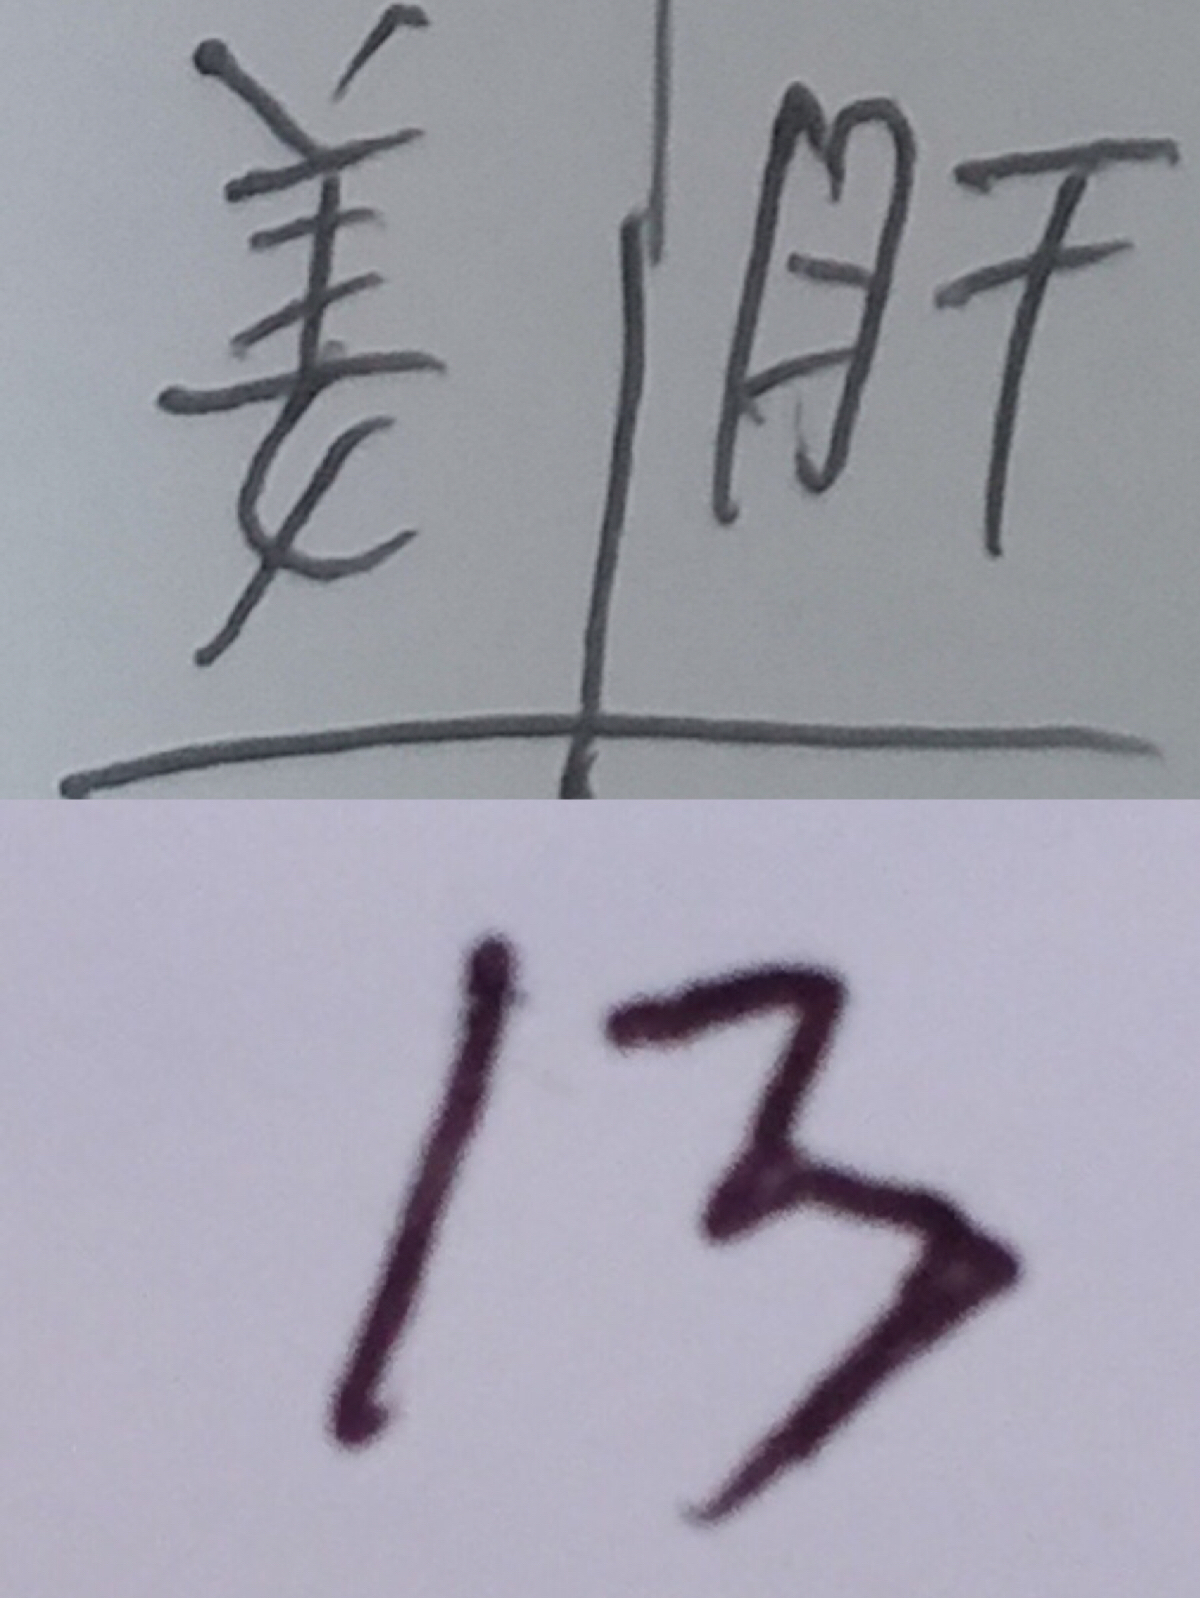 姜 肝
13